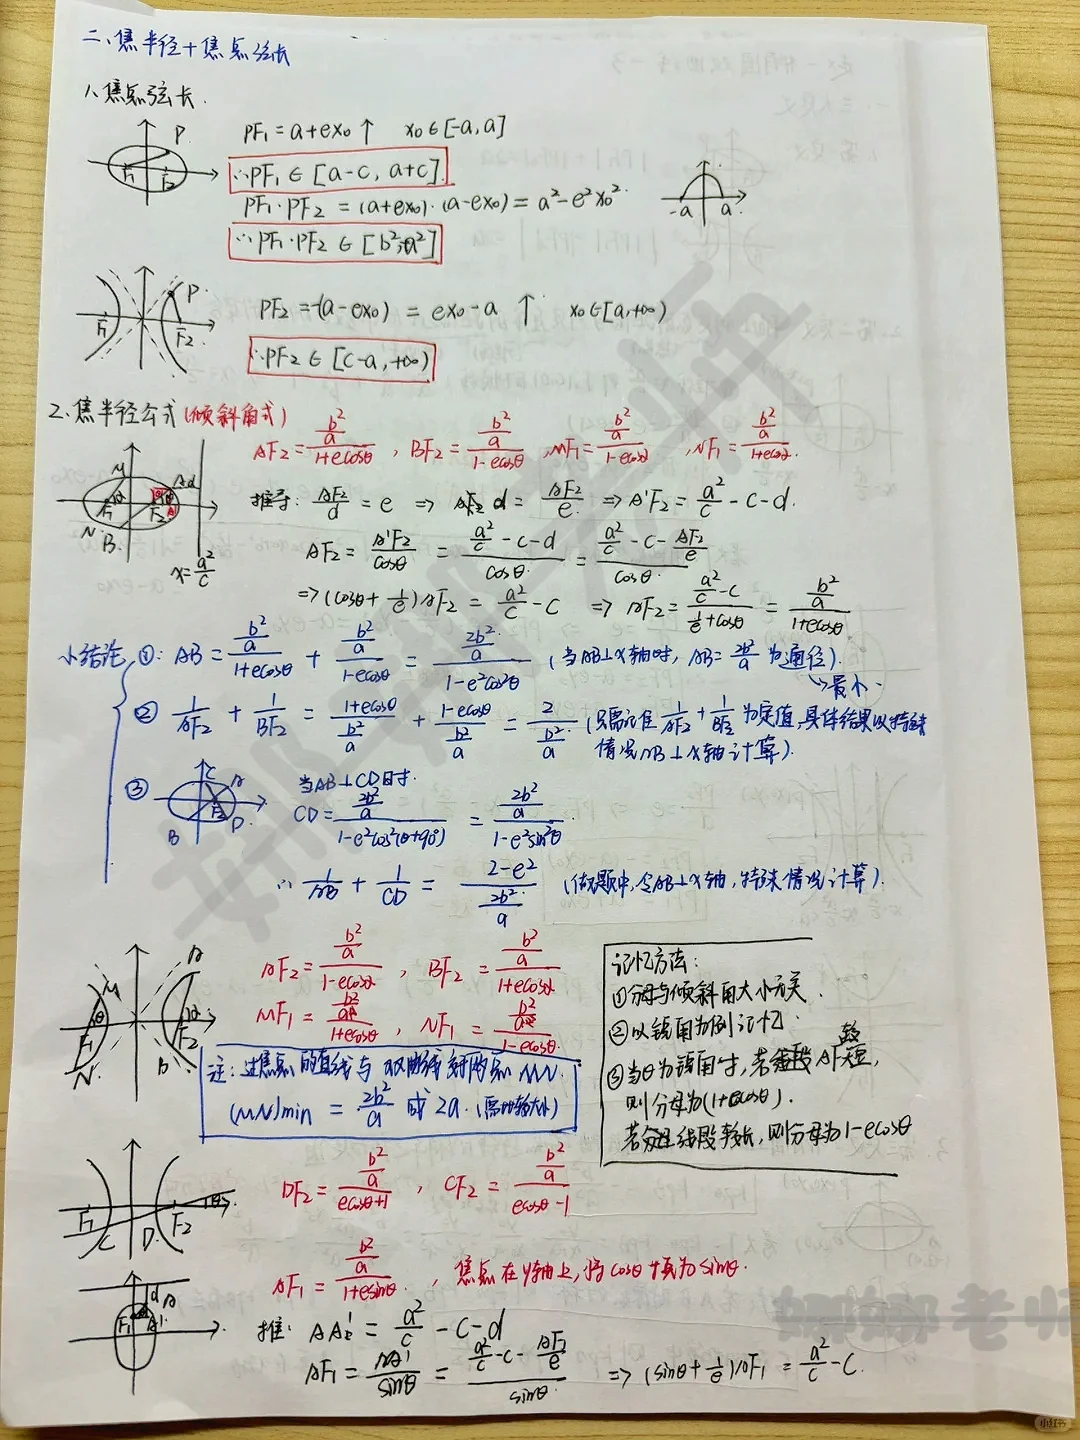 二、焦半径+焦点弦长
1、焦点弦长.
PF₁=a+ex₀↑ x₀∈[-a,a]
∴PF₁∈[a-c, a+c].
PF₁·PF₂=(a+ex₀)·(a-ex₀)=a²-e²x₀².
∴PF₁·PF₂∈[b²,a²]
PF₂=-(a-ex₀)=ex₀-a ↑ x₀∈[a,+∞)
∴PF₂∈[c-a,+∞)
2、焦半径公式(倾斜角式)
AF₂=(b²/a)/(1+ecosθ), BF₂=(b²/a)/(1-ecosθ), MF₁=(b²/a)/(1-ecosθ), NF₁=(b²/a)/(1+ecosθ).
推导: AF₂/d=e ⇒ d=AF₂/e ⇒ A'F₂=a²/c-c-d.
AF₂=A'F₂/cosθ=(a²/c-c-d)/cosθ=(a²/c-c-AF₂/e)/cosθ
x=a²/c
⇒(cosθ+1/e)AF₂=a²/c-c ⇒ AF₂=(a²/c-c)/(1/e+cosθ)=(b²/a)/(1+ecosθ)
小结论 ①: AB=(b²/a)/(1+ecosθ)+(b²/a)/(1-ecosθ)=(2b²/a)/(1-e²cos²θ) (当AB⊥x轴时, AB=2b²/a为通径).
→最小.
② 1/AF₂+1/BF₂=(1+ecosθ)/(b²/a)+(1-ecosθ)/(b²/a)=2/(b²/a) (只需记住1/AF₂+1/BF₂为定值,具体结果以特殊
情况AB⊥x轴计算).
③ 当AB⊥CD时.
CD=(2b²/a)/(1-e²cos²(θ+90°))=(2b²/a)/(1-e²sin²θ).
∴1/AB+1/CD=(2-e²)/(2b²/a) (做题中,令AB⊥x轴,特殊情况计算).
AF₂=(b²/a)/(1-ecosθ), BF₂=(b²/a)/(1+ecosθ)
MF₁=(b²/a)/(1+ecosθ), NF₁=(b²/a)/(1-ecosθ).
注:过焦点的直线与双曲线交于两点MN.
(MN)min=2b²/a或2a.(需比较大小)
记忆方法:
①分母与倾斜角大小有关.
②以锐角为例记忆.
③当θ为锐角时,若线段AF较短,
则分母为(1+ecosθ).
若线段较长,则分母为1-ecosθ
DF₂=(b²/a)/(ecosθ+1), CF₂=(b²/a)/(ecosθ-1)
AF₁=(b²/a)/(1+esinθ), 焦点在y轴上,将cosθ换为sinθ.
推: AA'=a²/c-c-d
AF₁=AA'/sinθ=(a²/c-c-AF₁/e)/sinθ ⇒(sinθ+1/e)AF₁=a²/c-c.
娜娜老师
小红书